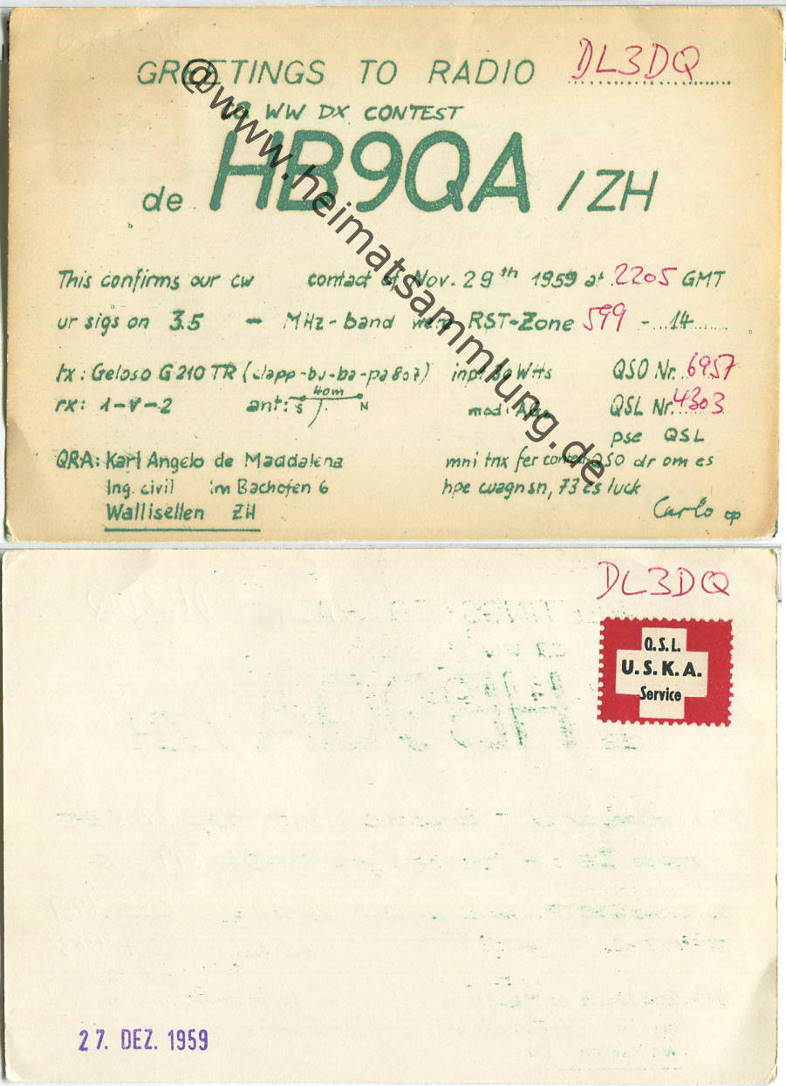 GREETINGS TO RADIO DL3DQ
WW DX CONTEST
de HB9QA /ZH
This confirms our cw contact of Nov. 29th 1959 at 2205 GMT
ur sigs on 3.5 - MHz-band were RST-Zone 599 - 14
tx: Geloso G210 TR ( -pa807) inpt Watts QSO Nr. 6957
40m
rx: 1-V-2 ant: S N mod: QSL Nr. 4303
pse QSL
QRA: Karl Angelo de Maddalena mni tnx fer contest QSO dr om es
Ing. civil im Bachofen 6 hpe cuagn sn, 73 es luck
Wallisellen ZH Carlo op
@www.heimatsammlung.de
DL3DQ
Q.S.L.
U.S.K.A.
Service
27. DEZ. 1959